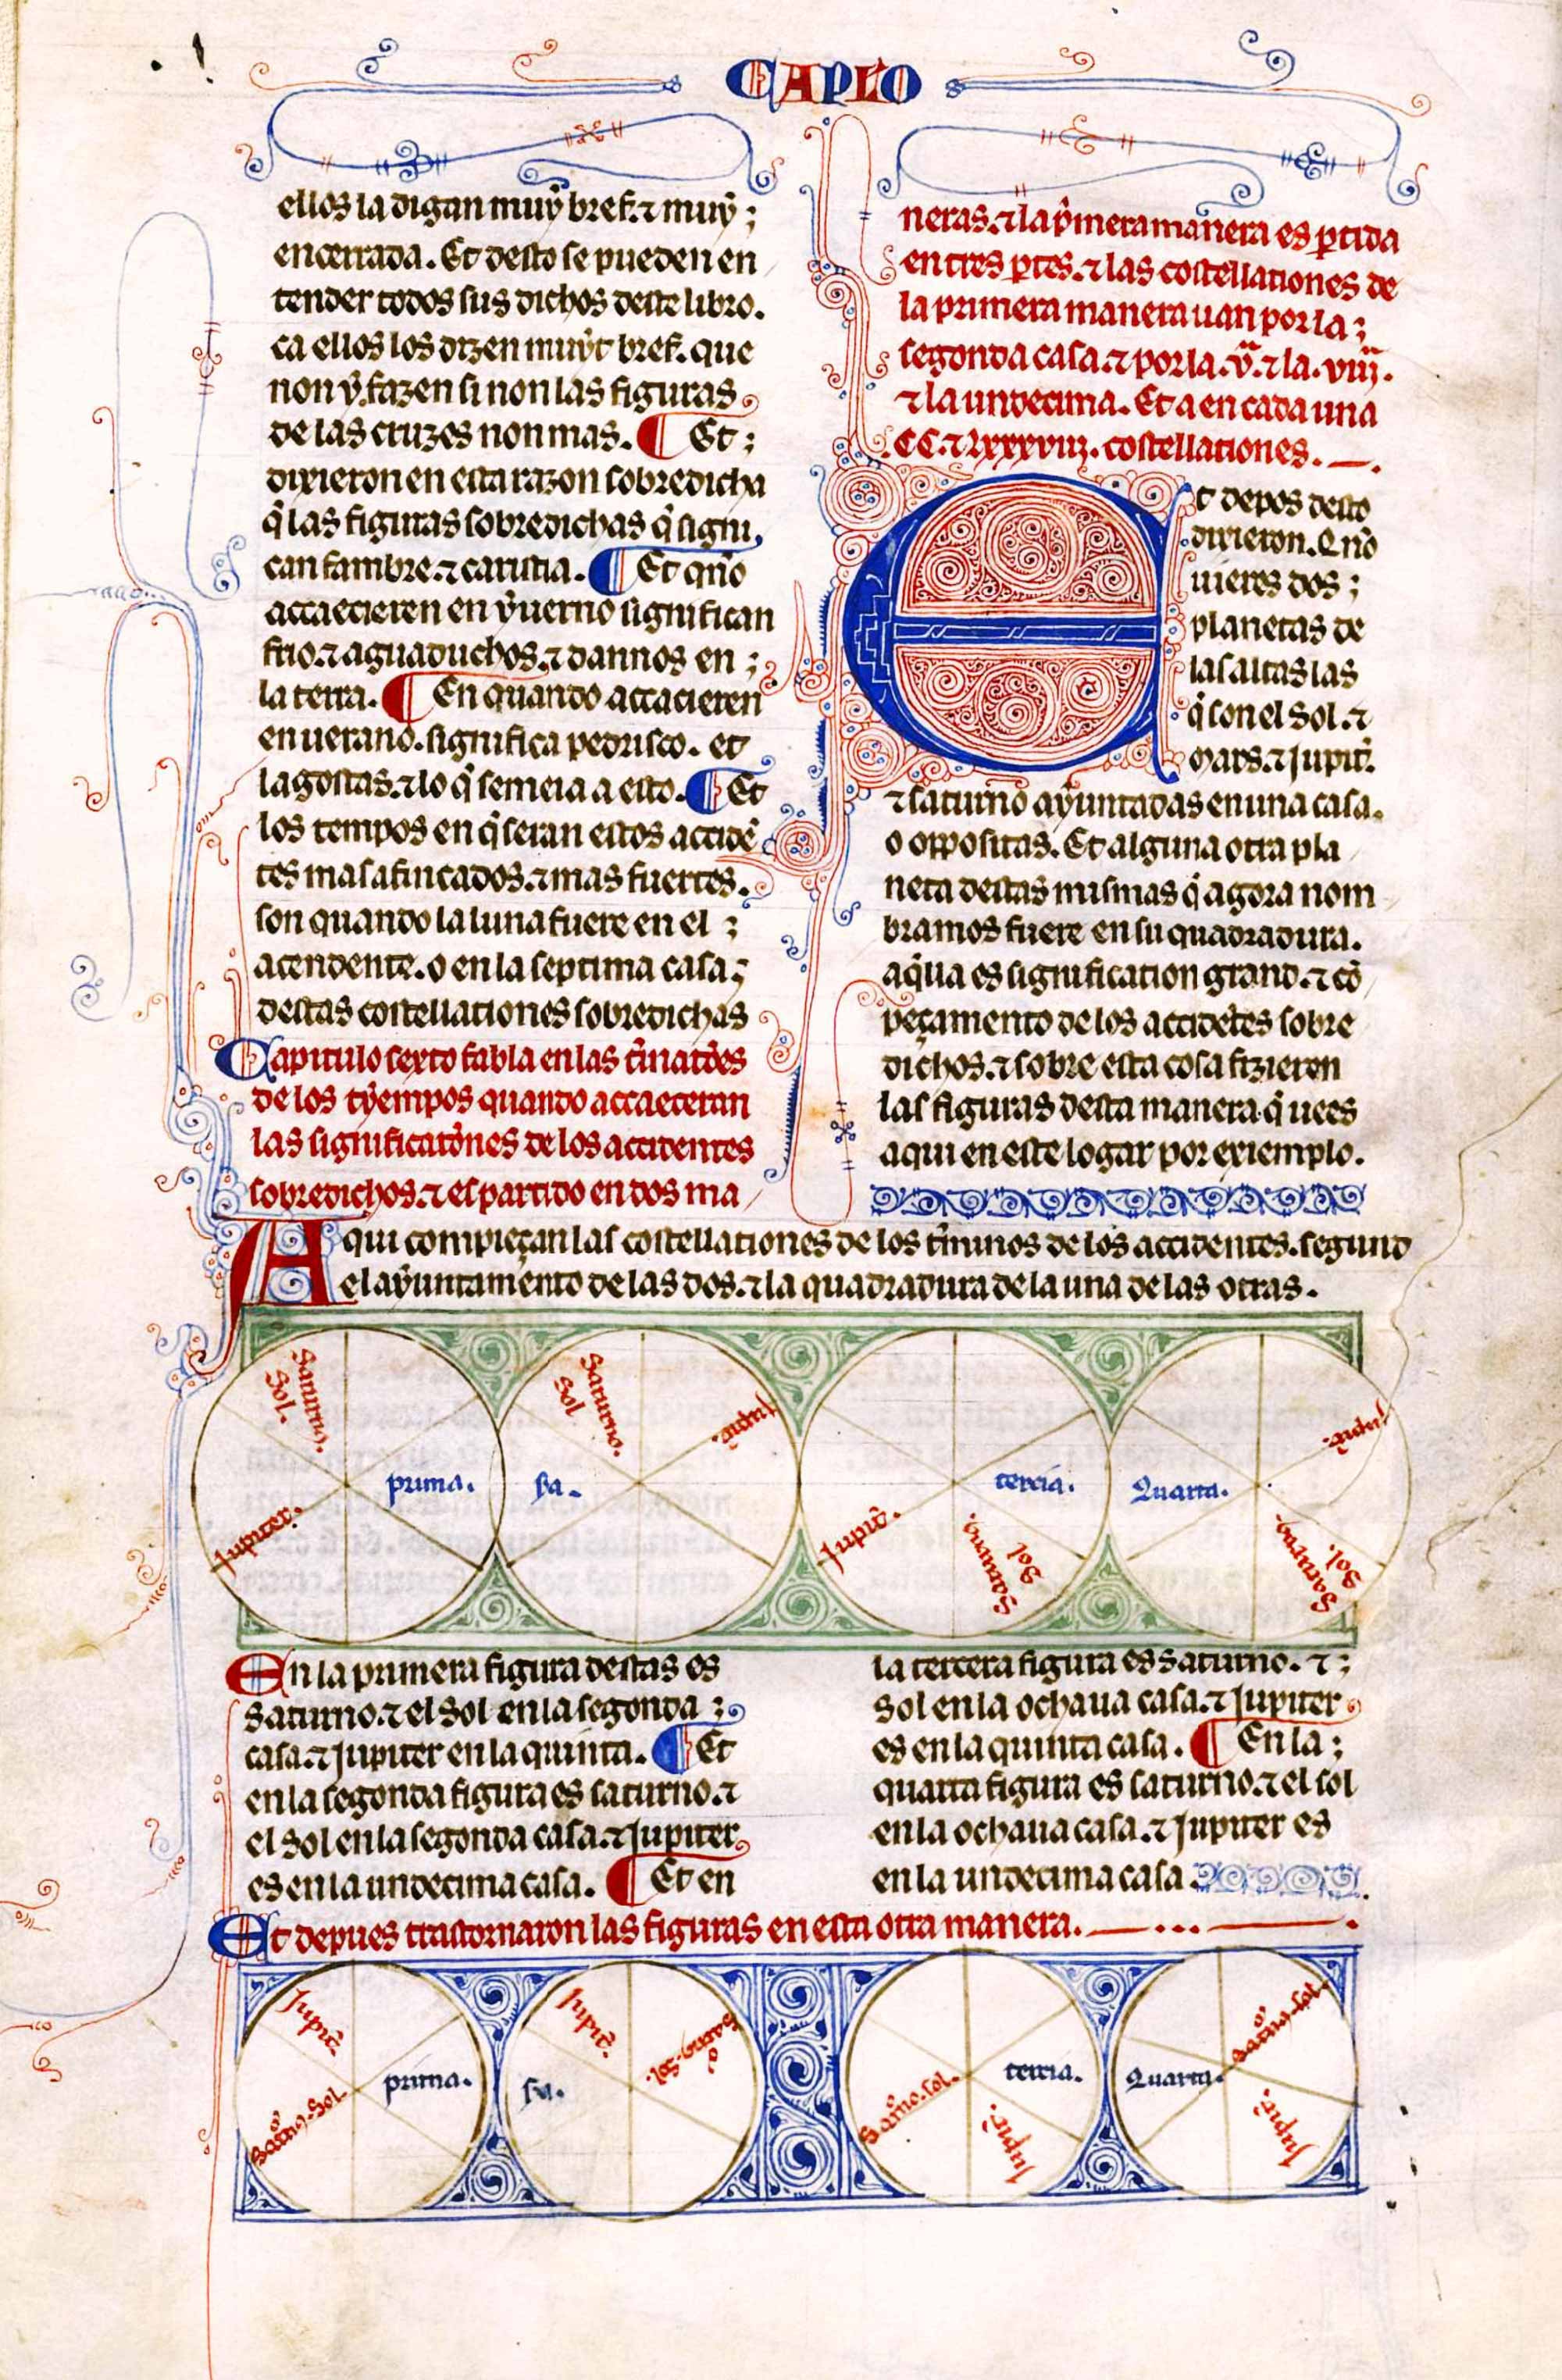 CAPLO
ellos la digan muẏ bref. ⁊ muẏ ;
encerrada. Et desto se pueden en
tender todos sus dichos deste libro.
ca ellos los dizen muẏt bref. que
non ẏ fazen si non las figuras
de las cruzes non mas. ¶ Et ;
dixieron en esta razon sobredicha
q̄ las figuras sobredichas q̄ signi,
can fambre. ⁊ caristia. ¶ Et qñdo
accaecieren en ẏuerno significan
frio. ⁊ aguaduchos. ⁊ dannos en ;
la terra. ¶ En quando accacieren
en uerano. significa pedrisco. et
lagostas. ⁊ lo q̄ semeia a esto. ¶ Et
los tempos en q̄ seran estos accidē
tes mas afincados. ⁊ mas fuertes.
son quando la luna fuere en el ;
acendente. o en la septima casa ;
destas costellationes sobredichas
Capitulo sexto fabla en las t̄minatōes
de los tẏempos quando accaeceran
las significatōnes de los accidentes
sobredichos. ⁊ es partido en dos ma
neras. ⁊ la p̄mera manera es ꝑtida
en tres ꝑtes. ⁊ las costellationes de
la primera manera uan por la ;
segonda casa. ⁊ por la .v.ª ⁊ la .viii.ª
⁊ la undecima. Et a en cada una
.CC. ⁊ Lxxxxviii. costellationes.
Et depos desto
dixieron. Qñdo
uieres dos ;
planetas de
las altas las
q̄ son el Sol. ⁊
Mars. ⁊ Jupit̄.
⁊ saturno aẏuntadas en una casa.
o oppositas. Et alguna otra pla
neta destas mismas q̄ agora nom
bramos fuere en su quadradura.
aq̄ua es signification grand. ⁊ cō
peçamento de los accidētes sobre
dichos. ⁊ sobre esta cosa fizieron
las figuras desta manera q̄ uees
aqui en este logar por exiemplo.
Aqui compieçan las costellationes de los t̄minos de los accidentes. segund
el aẏuntamento de las dos. ⁊ la quadradura de la una de las otras.
Saturno.
Sol.
prima.
Jupiter.
Saturno.
Sol
Jupit̄.
s̄a.
Jupit̄.
tercia.
Saturno
Sol
Quarta.
Jupit̄.
Saturno.
Sol.
En la primera figura destas es
Saturno. ⁊ el Sol en la segonda ;
casa. ⁊ Jupiter en la quinta. ¶ Et
en la segonda figura es saturno. ⁊
el Sol en la segonda casa. ⁊ Jupiter
es en la undecima casa. ¶ Et en
la tercera figura es Saturno. ⁊ ;
Sol en la ochaua casa. ⁊ Jupiter
es en la quinta casa. ¶ En la ;
quarta figura es saturno. ⁊ el sol
en la ochaua casa. ⁊ Jupiter es
en la undecima casa.
Et depues trastornaron las figuras en esta otra manera.
Jupit̄.
prima.
Satn̊o. Sol.
Jupit̄.
Satn̊o. Sol.
s̄a.
Satn̊o. Sol.
tercia.
Jupit̄.
Quarta.
Satn̊o. Sol.
Jupit̄.